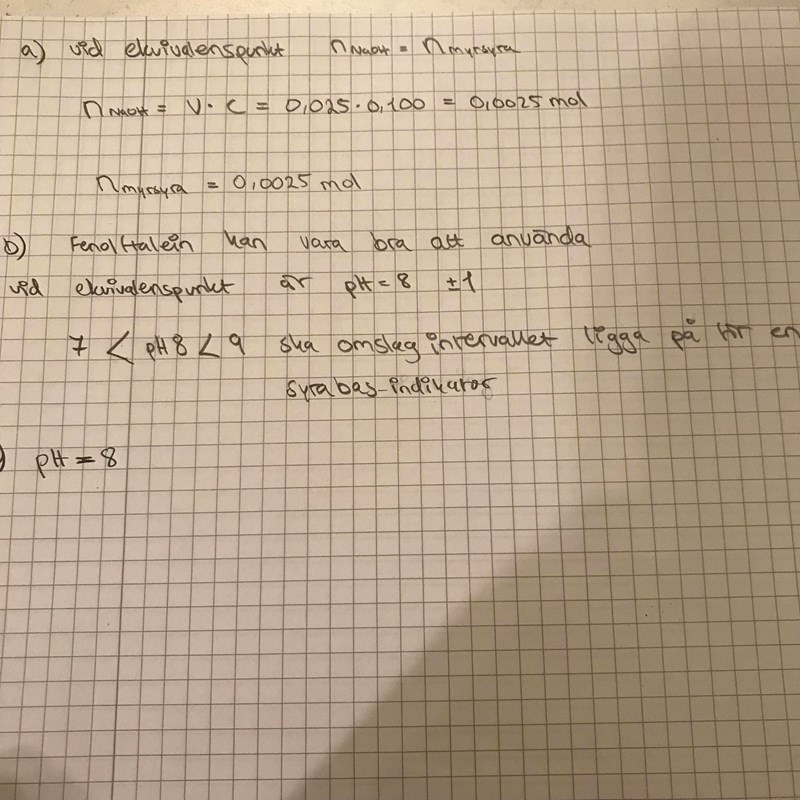 a) vid ekvivalenspunkt nNaOH = nmyrsyra
nNaOH = V · C = 0,025 · 0,100 = 0,0025 mol
nmyrsyra = 0,0025 mol
b) Fenolftalein kan vara bra att använda
vid ekvivalenspunkt är pH = 8 ±1
7 < pH 8 < 9 ska omslag intervallet ligga på för en
syrabas-indikator
) pH = 8